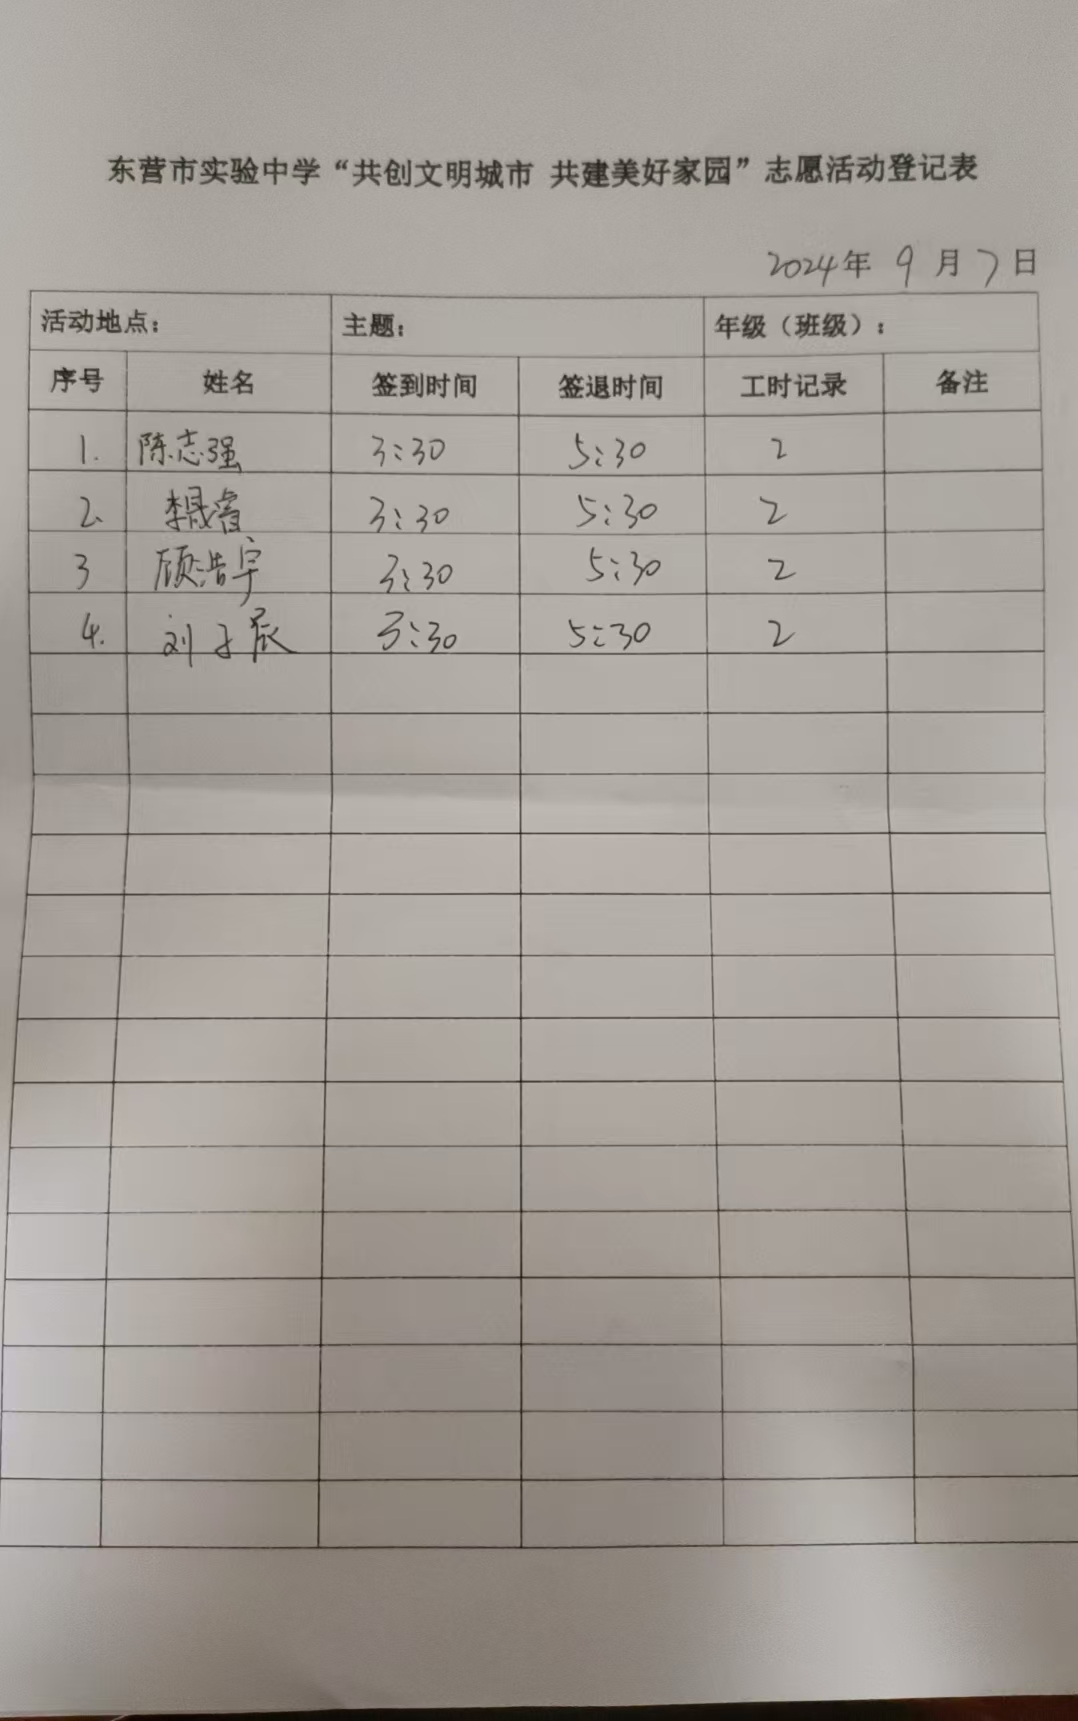 东营市实验中学“共创文明城市 共建美好家园”志愿活动登记表
2024年 9 月 7 日
活动地点： 主题： 年级（班级）：
序号 姓名 签到时间 签退时间 工时记录 备注
1. 陈志强 3:30 5:30 2
2. 李晟睿 3:30 5:30 2
3 顾浩宇 3:30 5:30 2
4. 刘子辰 3:30 5:30 2